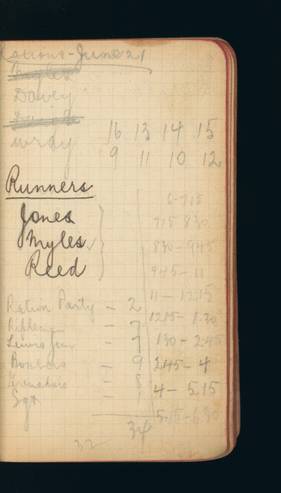 June 21
Myles
Davey
Wray
16 13 14 15
9 11 10 12
Runners
Jones
Myles
Reed
6-7.15
7.15 8.30
8.30-9.45
9.45-11
11-12.15
12.15-1.30
1.30-2.45
2.45-4
4-5.15
5.15-6.30
Ration Party - 2
- 7
Lewis Gun - 7
Bombers - 9
Grenadiers - 8
Sgt - 1
34
32